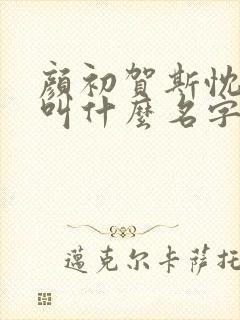 顏初賀斯忱
叫什麼名字
邁克尔卡薩托